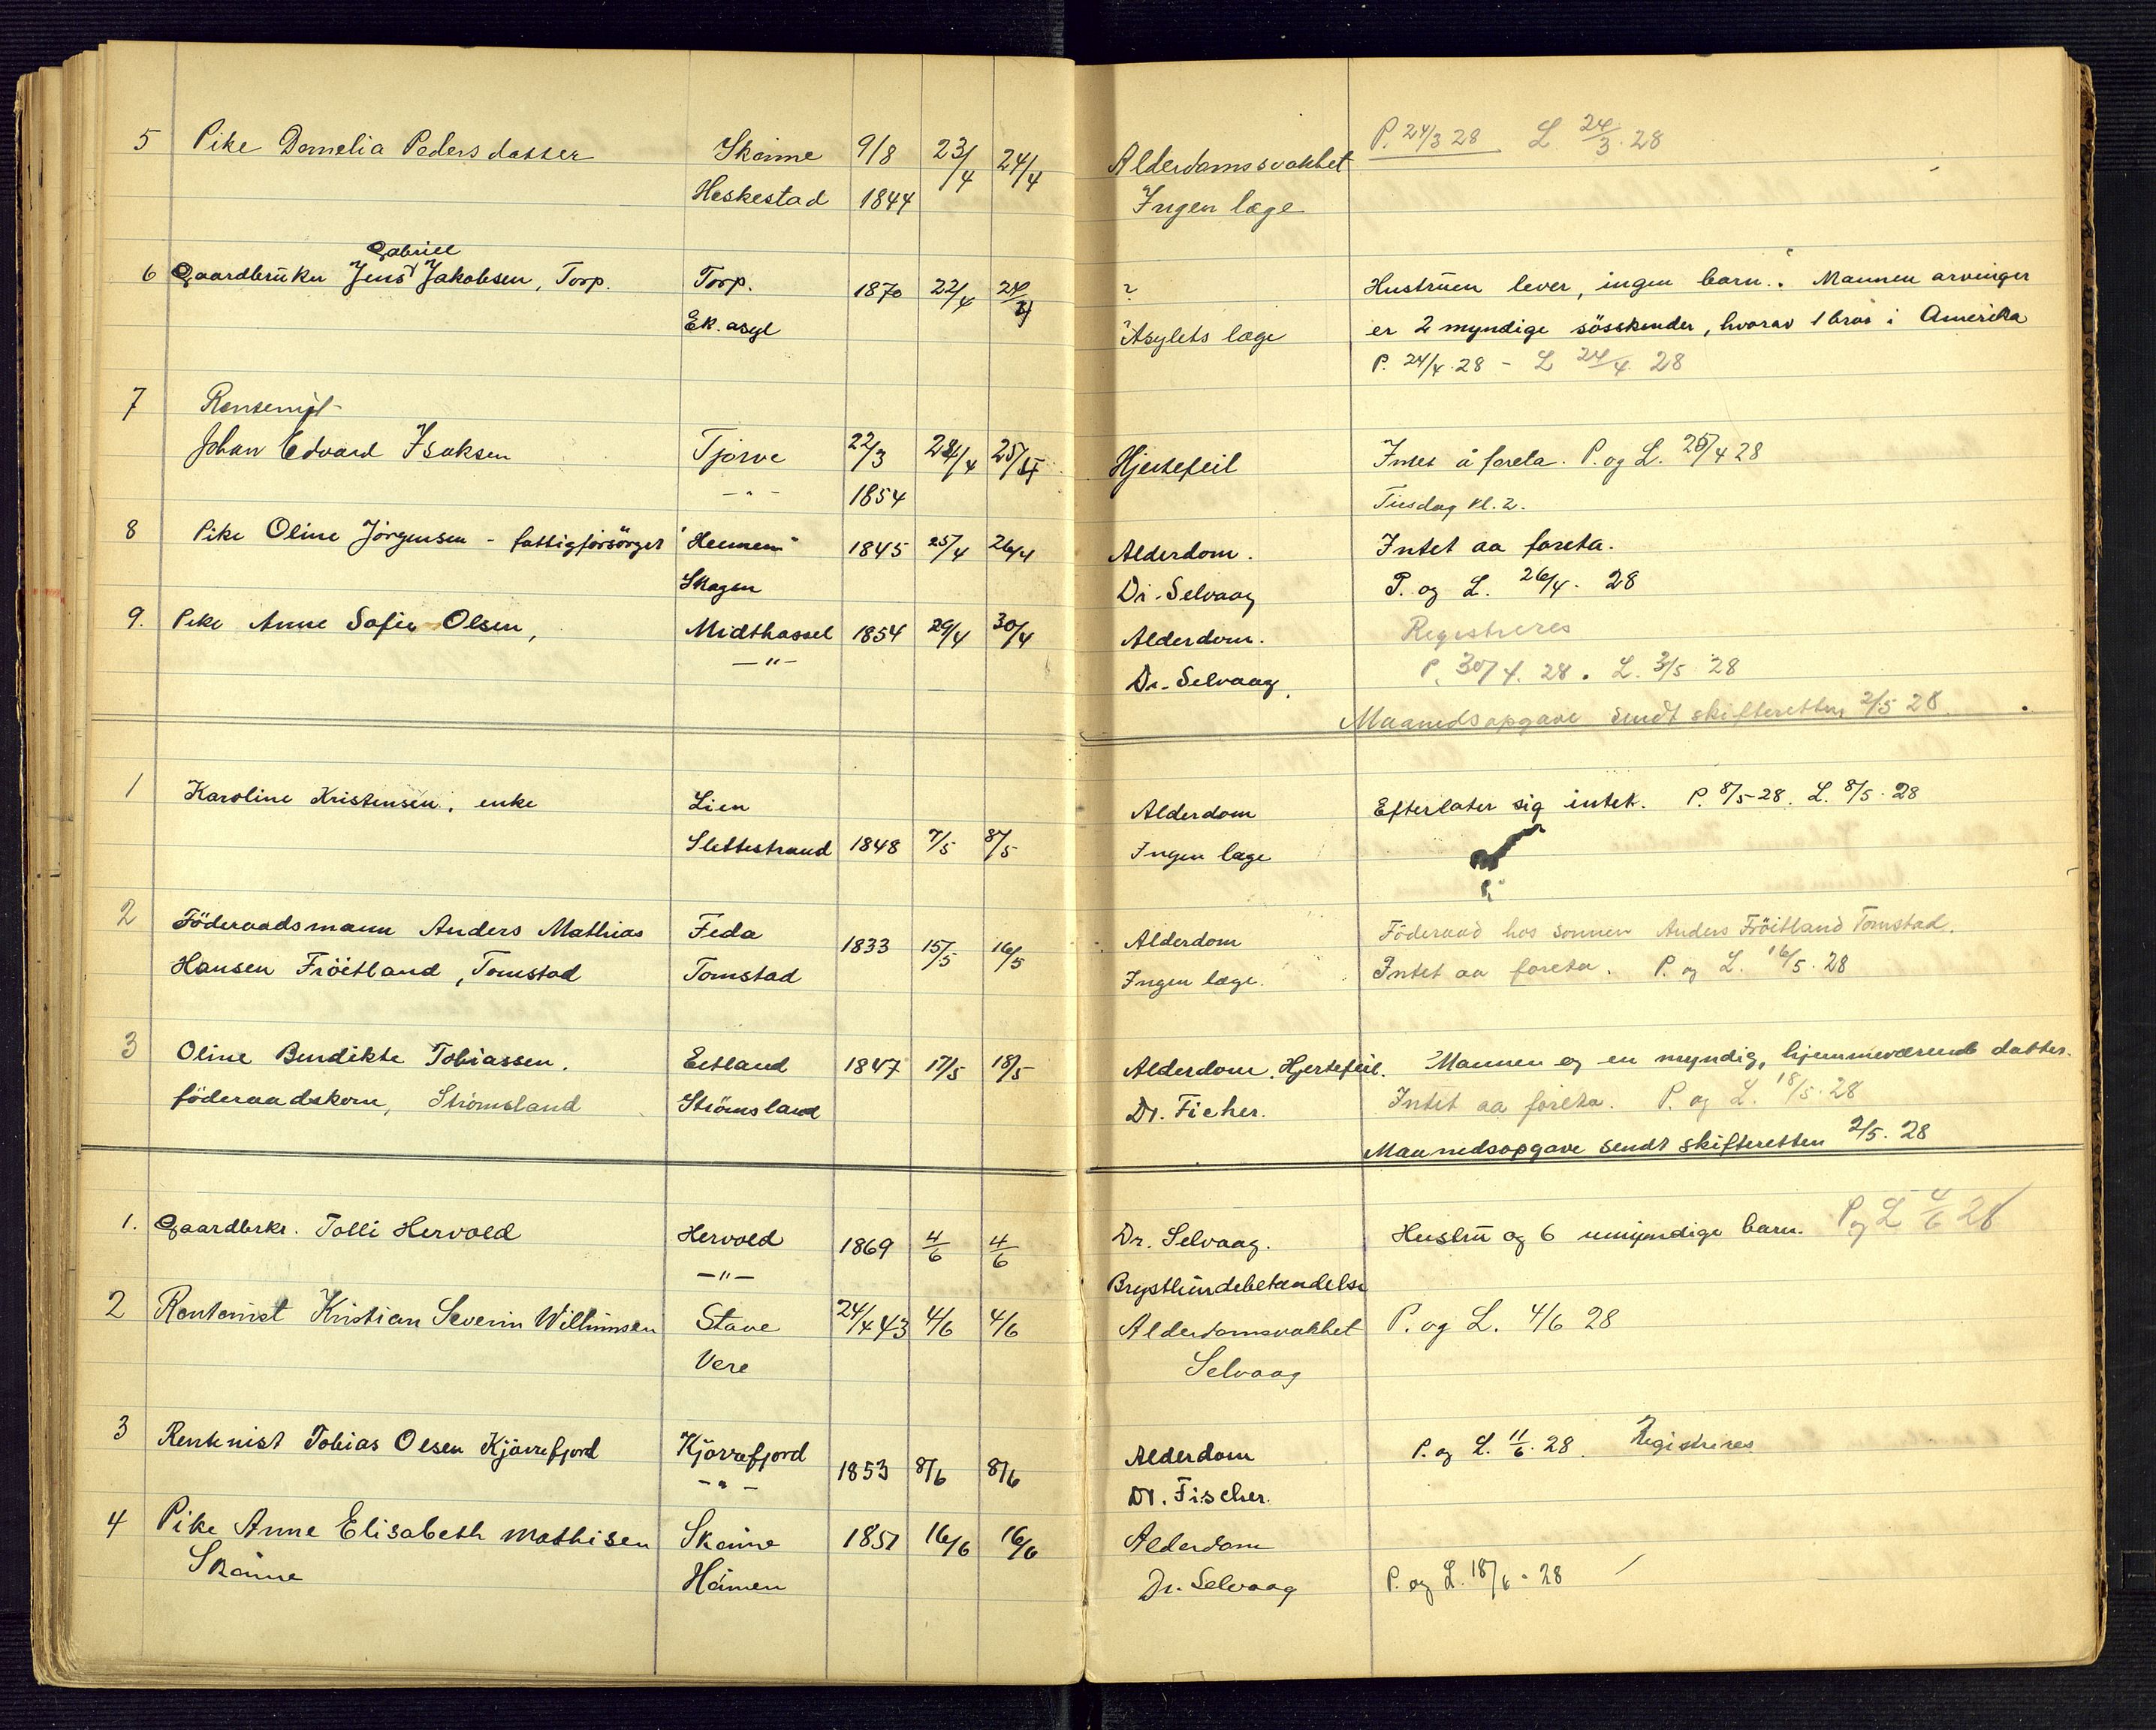 5 Pike Damelia Pedersdatter Skeime 9/8 23/4 24/4 Alderdomssvakhet P. 24/3 28 L. 24/3. 28
Heskestad 1844 Ingen læge
Gabriel
6 Gaardbruker Jens Jakobsen, Torp. Torp. 1870 22/4 24/4 ? Hustruen lever, ingen barn. Mannen arvinger
Ek. asyl Asylets læge er 2 myndige søskender, hvorav 1 bror i Amerika
P. 24/4. 28 - L 24/4. 28
7 Rentenist
Johan Edvard Isaksen Tjørve 22/3 24/4 25/4 Hjertefeil Intet å foreta. P. og L. 25/4 28
-"- 1854 Tirsdag kl. 2.
8 Pike Oline Jörgensen - fattigforsörget "Heimen" 1845 25/4 26/4 Alderdom. Intet aa foreta.
Skagen Dr. Selvaag P. og L. 26/4. 28
9. Pike Anne Sofie Olsen, Midthassel 1854 29/4 30/4 Alderdom. Registreres
-"- Dr. Selvaag. P. 30/4. 28. L. 3/5 28
Maanedsopgave sendt skifteretten 2/5 28.
1 Karoline Kristensen, enke Lien Alderdom Efterlater sig intet. P. 8/5-28. L. 8/5. 28
Slettestrand 1848 7/5 8/5 Ingen læge
2 Föderaadsmann Anders Mathias Feda 1833 15/5 16/5 Alderdom Föderaad hos sonnen Anders Fröitland Tomstad.
Hansen Fröitland, Tomstad Tomstad Ingen læge. Intet aa foreta. P. og L. 16/5. 28
3 Oline Bendikte Tobiassen. Eitland 1847 17/5 18/5 Alderdom. Hjertefeil. Mannen og en myndig, hjemmeværende datter.
föderaadskone, Strömsland Strömsland Dr. Ficher. Intet aa foreta. P. og L. 18/5. 28
Maanedsopgave sendt skifteretten 2/5. 28
1. Gaardbrkr. Tolli Hervold Hervold 1869 4/6 4/6 Dr. Selvaag. Hustru og 6 umyndige barn. P og L 4/6 28
-"- Brysthindebetændelse
2 Rentenist Kristian Severin Willumsen Stave 24/4 43 4/6 4/6 Alderdomsvakhet P. og L. 4/6 28
Vere Selvaag
3 Rentenist Tobias Olsen Kjörrefjord Kjörrefjord 1853 8/6 8/6 Alderdom P. og L. 11/6. 28. Registreres
-"- Dr. Fischer.
4 Pike Anne Elisabeth Mathisen Skeime 1851 16/6 16/6 Alderdom
Skeime Heimen Dr. Selvaag P. og L. 18/6. 28